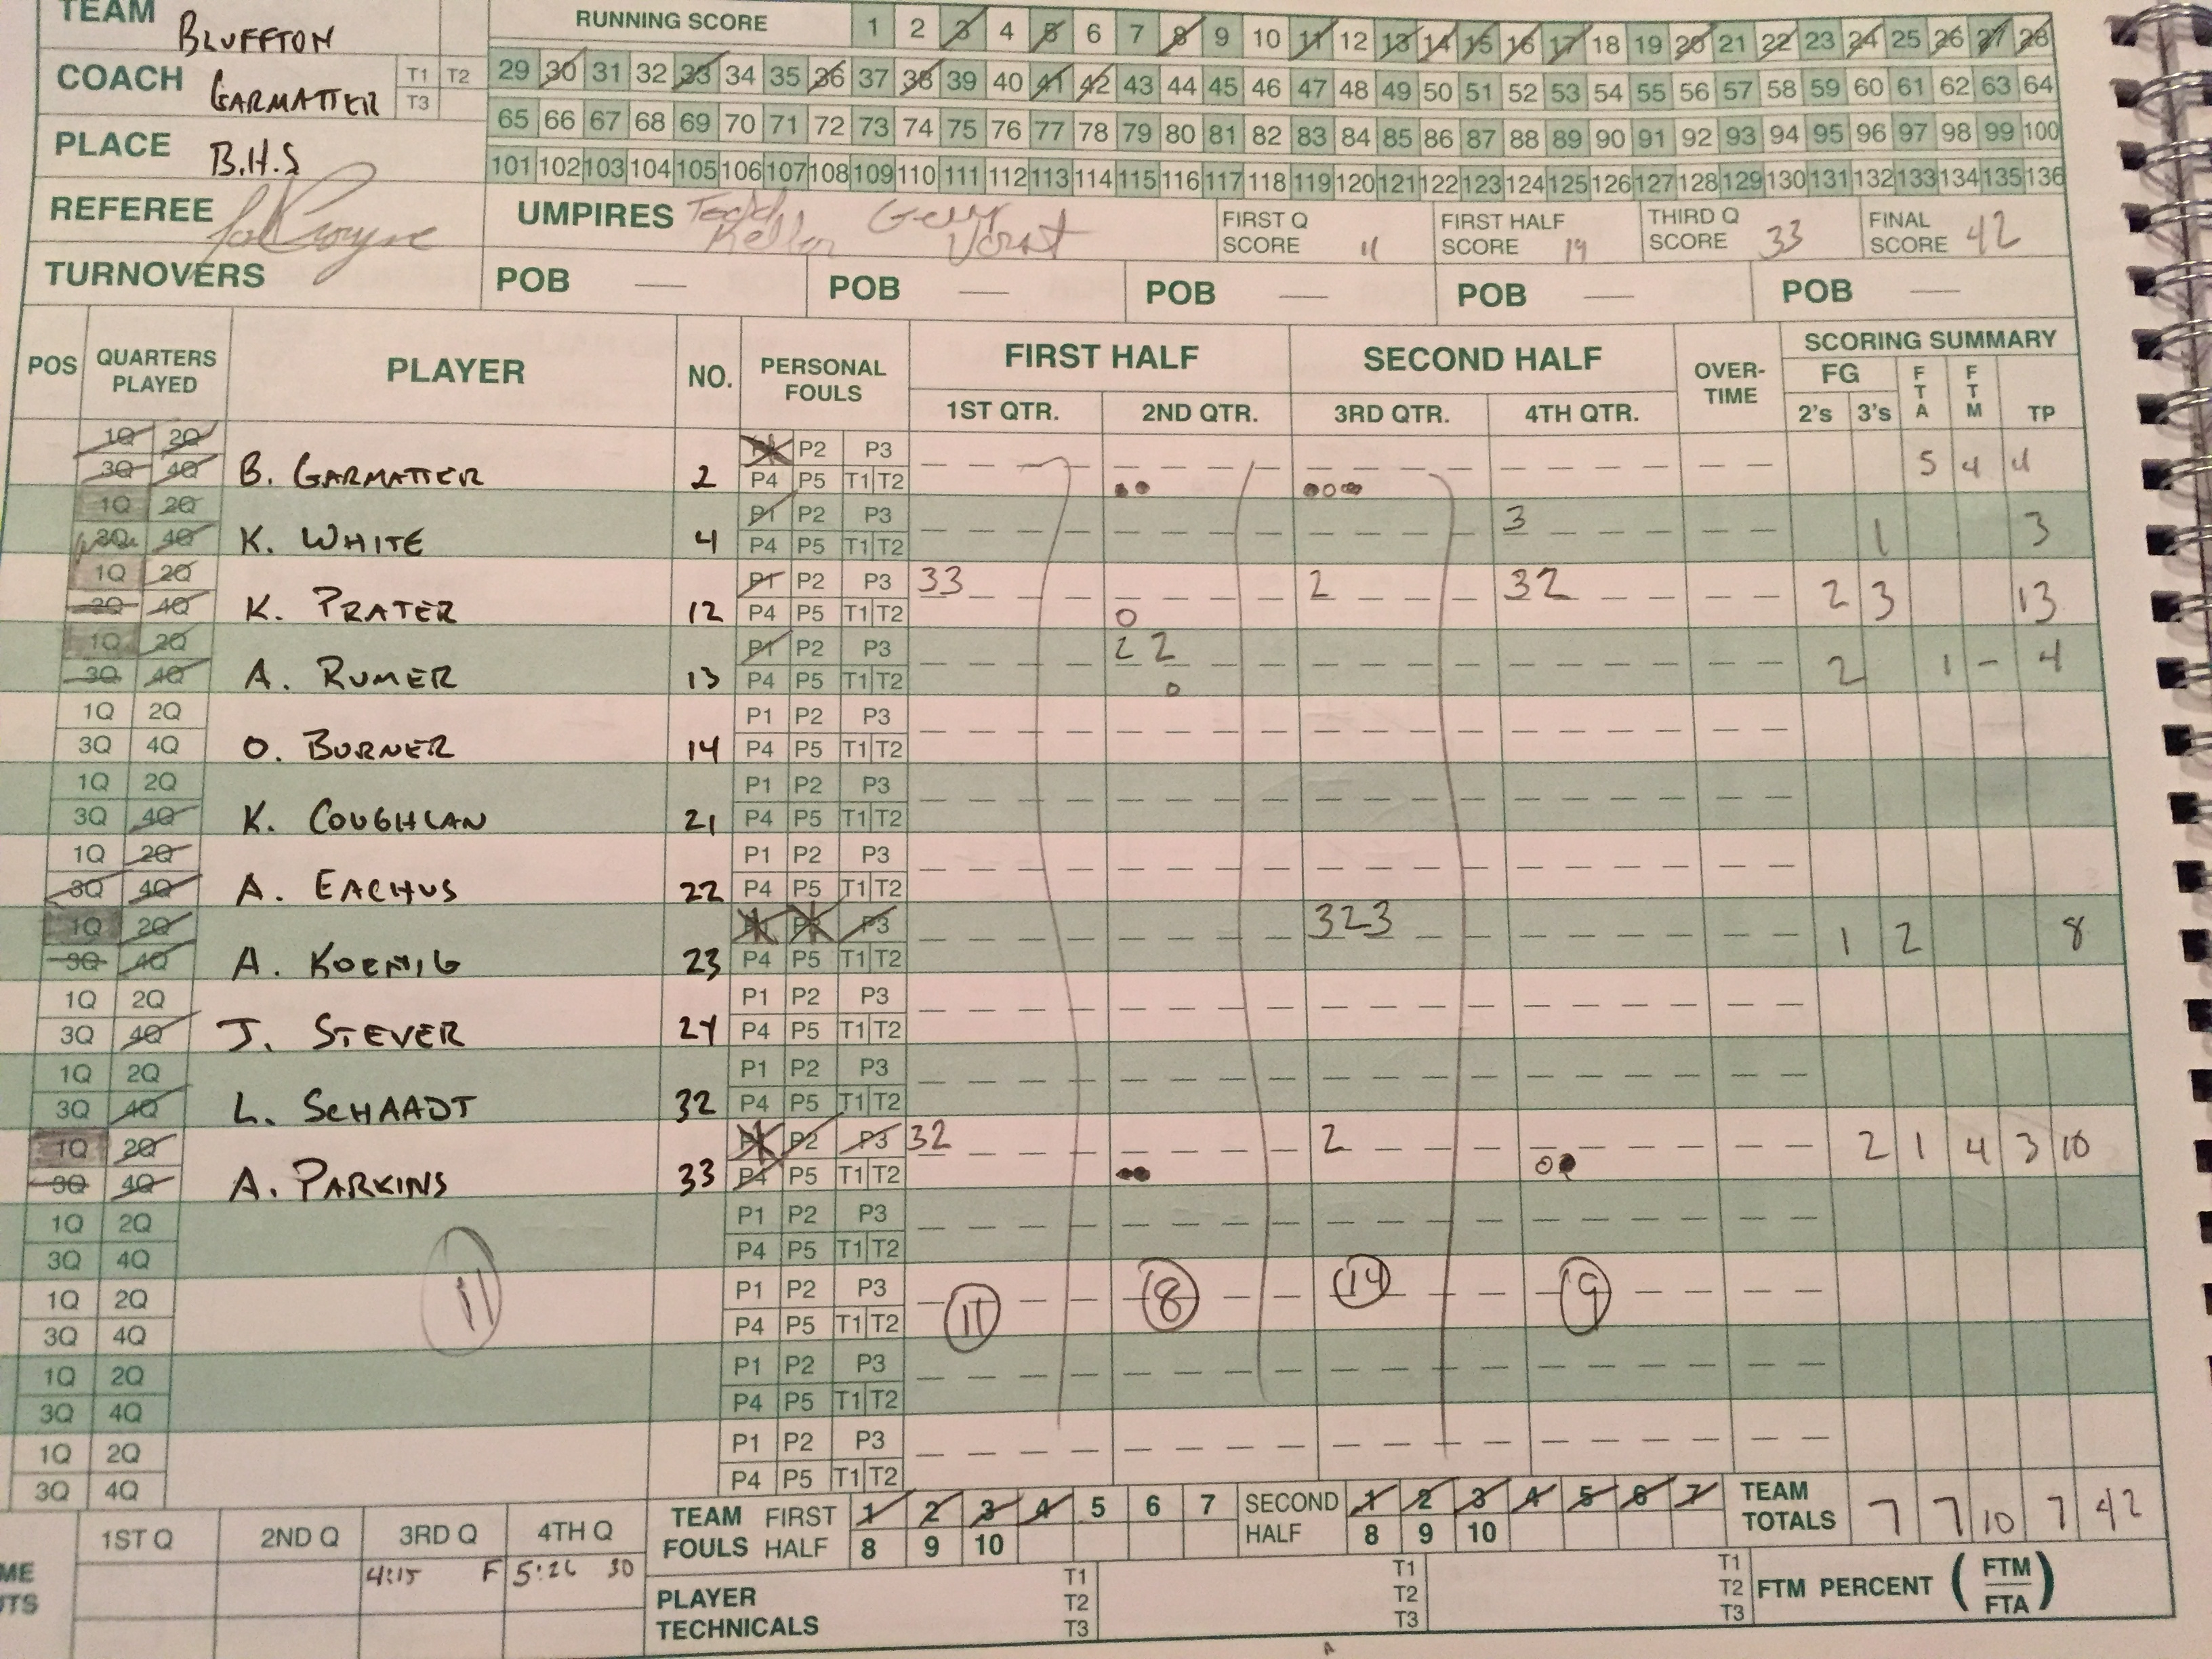 TEAM BLUFFTON
RUNNING SCORE 1 2 3 4 5 6 7 8 9 10 11 12 13 14 15 16 17 18 19 20 21 22 23 24 25 26 27 28
COACH GARMATTER T1 T2 T3
29 30 31 32 33 34 35 36 37 38 39 40 41 42 43 44 45 46 47 48 49 50 51 52 53 54 55 56 57 58 59 60 61 62 63 64
65 66 67 68 69 70 71 72 73 74 75 76 77 78 79 80 81 82 83 84 85 86 87 88 89 90 91 92 93 94 95 96 97 98 99 100
PLACE B.H.S
101 102 103 104 105 106 107 108 109 110 111 112 113 114 115 116 117 118 119 120 121 122 123 124 125 126 127 128 129 130 131 132 133 134 135 136
REFEREE
UMPIRES Todd Keller Gery Vorst
FIRST Q SCORE 11
FIRST HALF SCORE 19
THIRD Q SCORE 33
FINAL SCORE 42
TURNOVERS POB — POB — POB — POB — POB —
POS QUARTERS PLAYED PLAYER NO. PERSONAL FOULS FIRST HALF SECOND HALF OVER-TIME SCORING SUMMARY
1ST QTR. 2ND QTR. 3RD QTR. 4TH QTR. FG 2's 3's FTA FTM TP
1Q 2Q P1 P2 P3
3Q 4Q B. GARMATTER 2 P4 P5 T1 T2 5 4 4
1Q 2Q P1 P2 P3 3
3Q 4Q K. WHITE 4 P4 P5 T1 T2 1 3
1Q 2Q P1 P2 P3 33 2 32
3Q 4Q K. PRATER 12 P4 P5 T1 T2 2 3 13
1Q 2Q P1 P2 P3 2 2
3Q 4Q A. RUMER 13 P4 P5 T1 T2 2 1 - 4
1Q 2Q P1 P2 P3
3Q 4Q O. BURNER 14 P4 P5 T1 T2
1Q 2Q P1 P2 P3
3Q 4Q K. COUGHLAN 21 P4 P5 T1 T2
1Q 2Q P1 P2 P3
3Q 4Q A. EACHUS 22 P4 P5 T1 T2
1Q 2Q P1 P2 P3 323
3Q 4Q A. KOENIG 23 P4 P5 T1 T2 1 2 8
1Q 2Q P1 P2 P3
3Q 4Q J. STEVER 24 P4 P5 T1 T2
1Q 2Q P1 P2 P3
3Q 4Q L. SCHAADT 32 P4 P5 T1 T2
1Q 2Q P1 P2 P3 32 2
3Q 4Q A. PARKINS 33 P4 P5 T1 T2 2 1 4 3 10
1Q 2Q P1 P2 P3
3Q 4Q P4 P5 T1 T2
11
1Q 2Q P1 P2 P3 11 8 14 9
3Q 4Q P4 P5 T1 T2
1Q 2Q P1 P2 P3
3Q 4Q P4 P5 T1 T2
1Q 2Q P1 P2 P3
3Q 4Q P4 P5 T1 T2
1ST Q 2ND Q 3RD Q 4TH Q
4:15 F 5:26 30
TEAM FOULS FIRST HALF 1 2 3 4 5 6 7 8 9 10
SECOND HALF 1 2 3 4 5 6 7 8 9 10
TEAM TOTALS 7 7 10 7 42
PLAYER TECHNICALS T1 T2 T3 T1 T2 T3 T1 T2 T3
FTM PERCENT (FTM FTA)